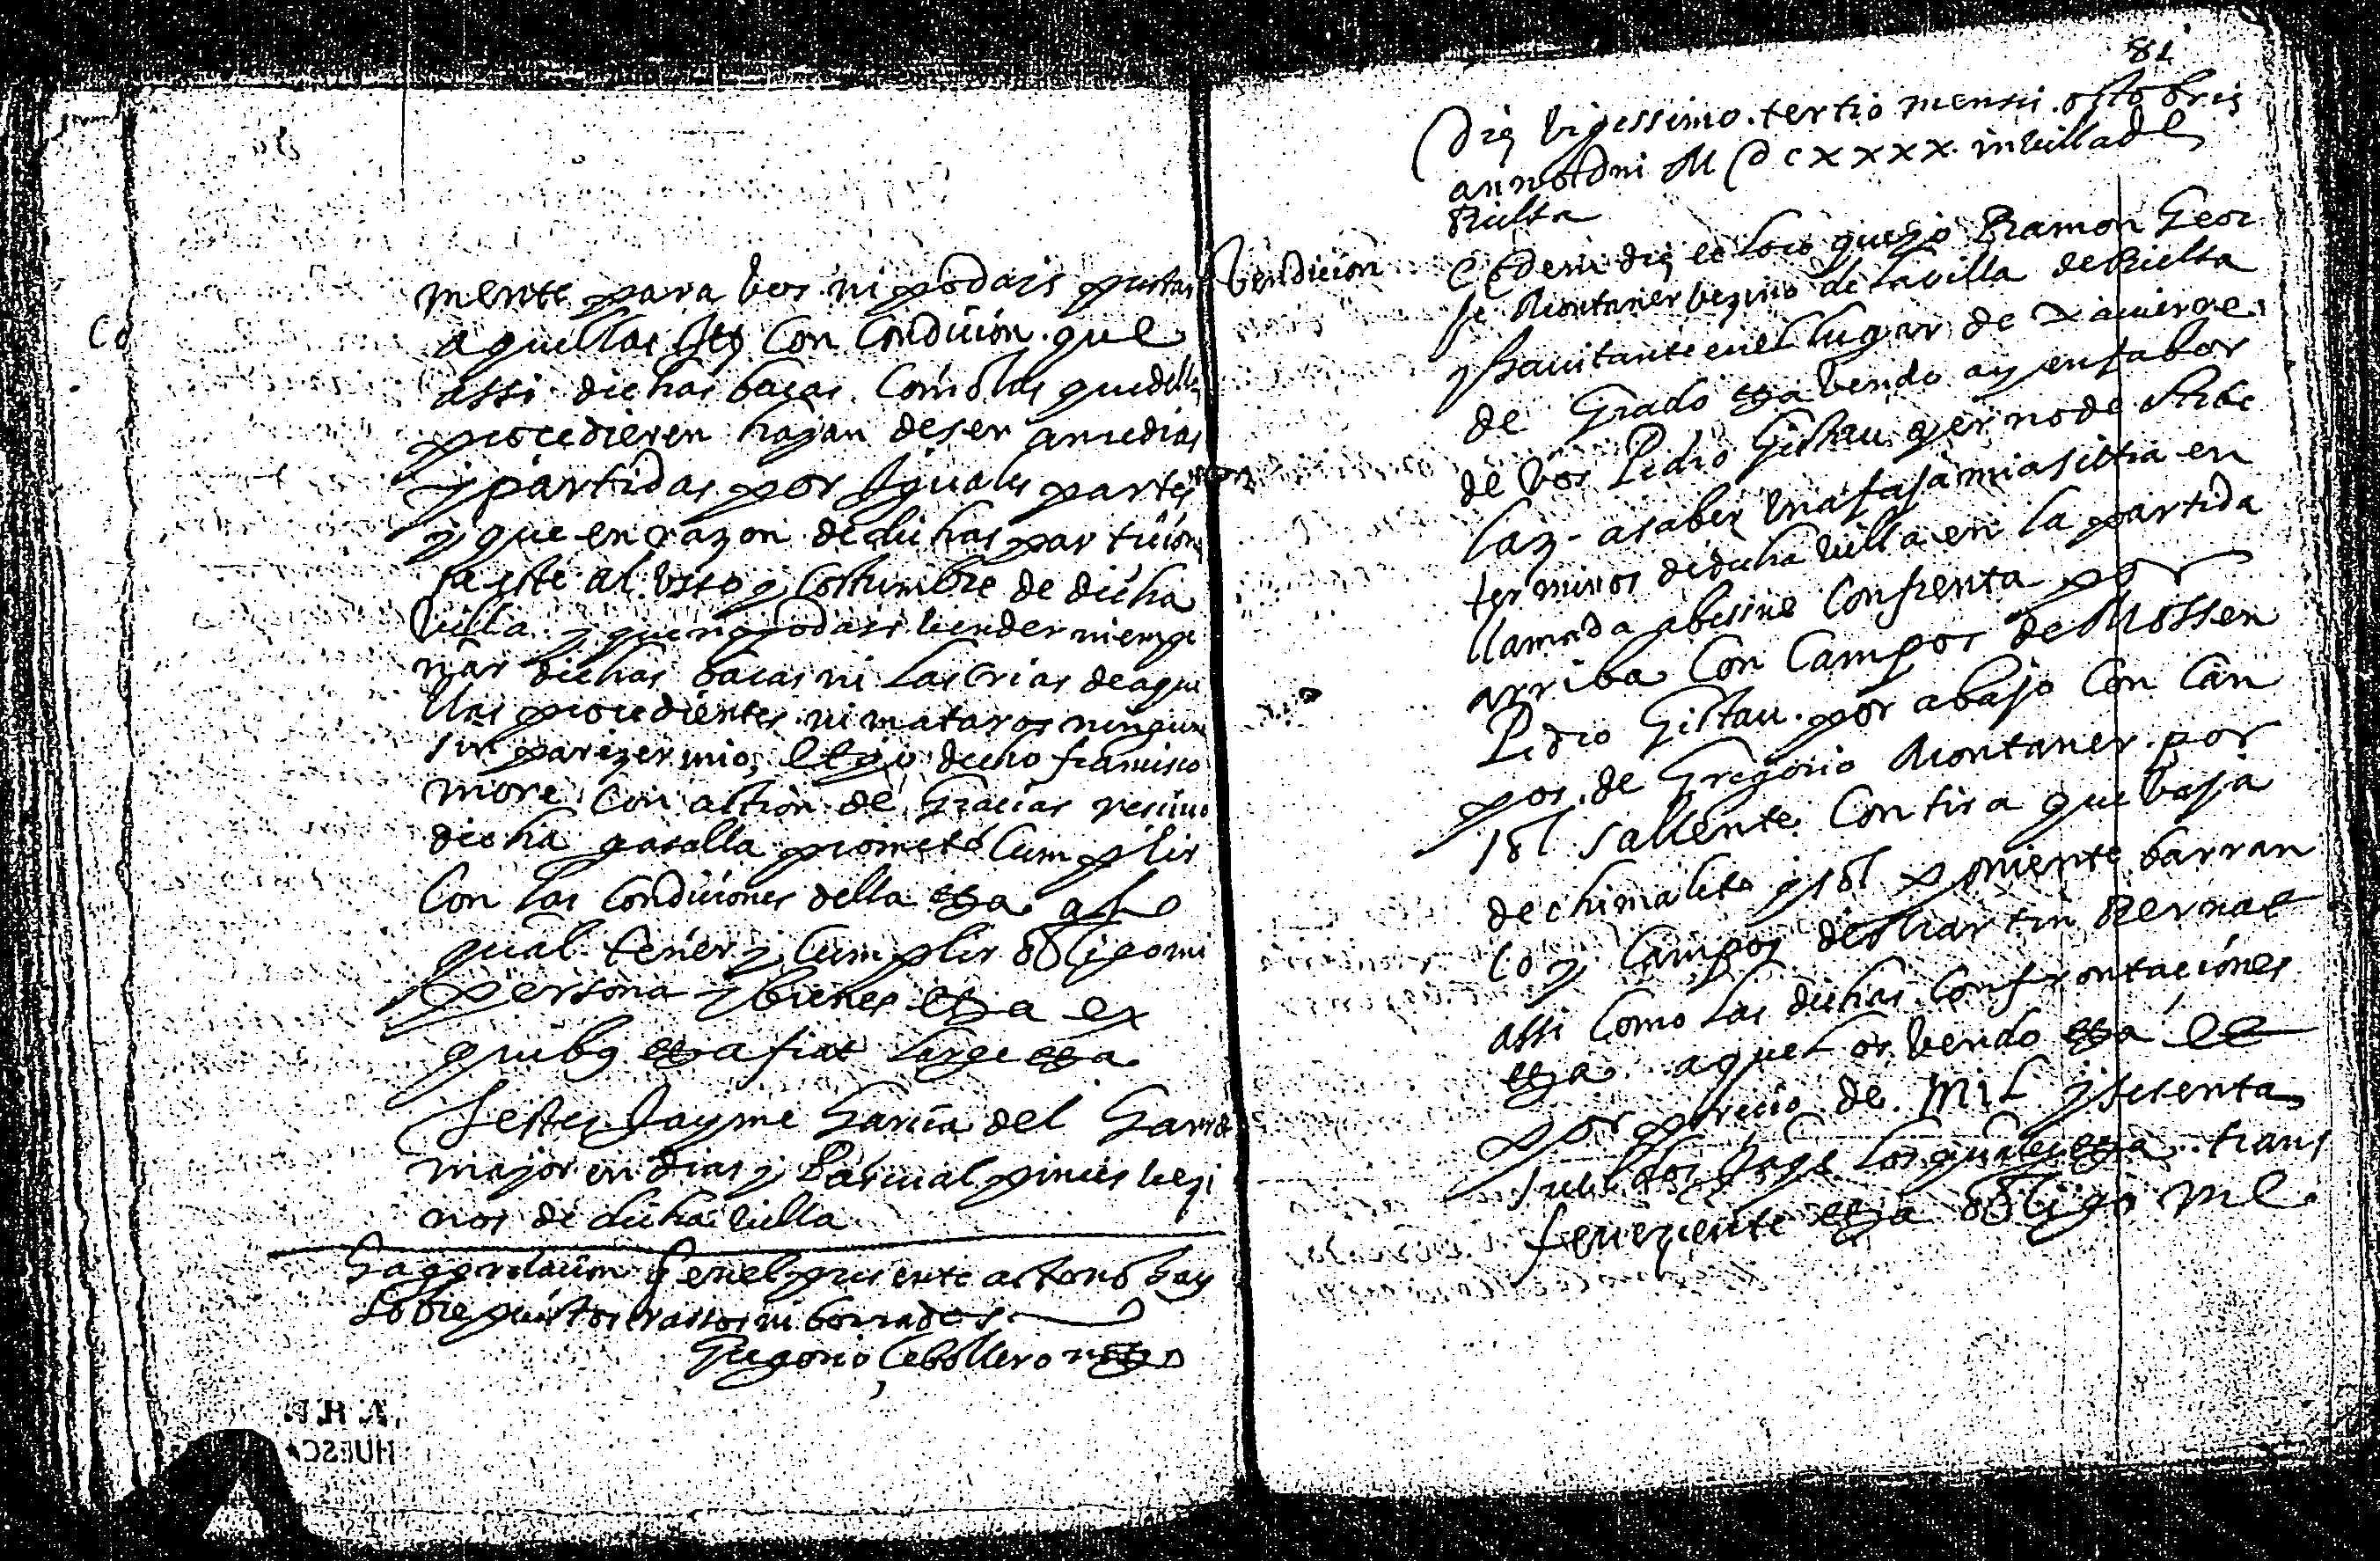 mente para vos ni podais prestar
aquellas Itt. Con Condicion que
assi dichas bacas Como las que dellas
procedieren hajan de ser a medias
y partidas por Iguales partes
y que en razon de dichas particiones
sa este al usso y Costumbre de dicha
villa y que no podais vender ni enage
nar dichas bacas ni las crias de aque
llas procedientes ni mataros ninguna
sin parezer mio, et yo dicho francisco
more Con action de Gracias recivo
dicha gasalla prometo Cumplir
Con las Condiciones della etta a lo
qual tener y Cumplir obligo mi
persona y bienes etta ex
quibus etta fiat large etta
Testes Jayme Garcia del
major en dias y Pascual pinies vezi
nos de dicha villa
que en el presente acto no hay
Sobrepuestos rassos ni borrados
Gregorio Cebollero notº
81
Die vigessimo tertio mensis octobris
anno Dni M DCXXXX in villa de
Bielsa
Vendicion
Eadem die et loco que yo Ramon Geor
ge Montaner vezino de la villa de Bielsa
y havitante en el lugar de Xavierre
de Grado etta vendo a y en fabor
de vos Pedro Gistau yerno de
laz asaber una faja mia sitia en
terminos de dicha villa en la partida
llamada Confrenta por
arriba Con Campos de Mossen
Pedro Gistau por abajo Con Can
pos de Gregorio Montaner por
sol sallente Con tira que baja
de chimalete y sol poniente barran
co y Campos de Martin Bernad
assi Como las dichas Confrontaciones
etta aquel os vendo etta et
por precio de mil y sesenta
sueldos Jaqs los quales etta trans
feriente etta obligo me